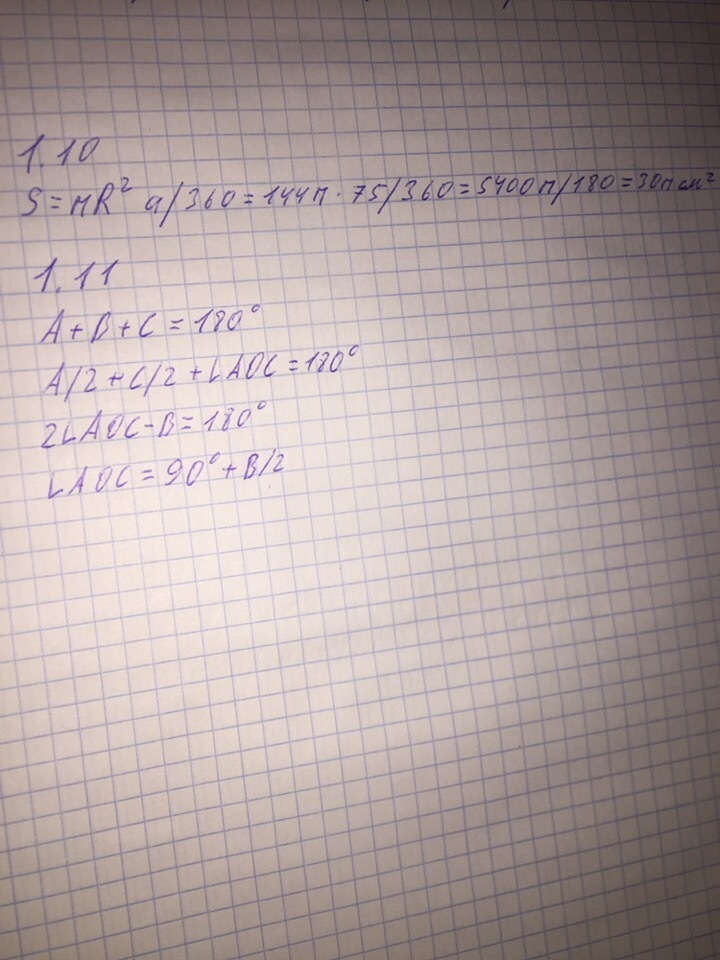 1.10
S=пR² a/360=144п·75/360=5400п/180=30п см²
1.11
A+B+C=180°
A/2+C/2+∠AOC=180°
2∠AOC-B=180°
∠AOC=90°+B/2